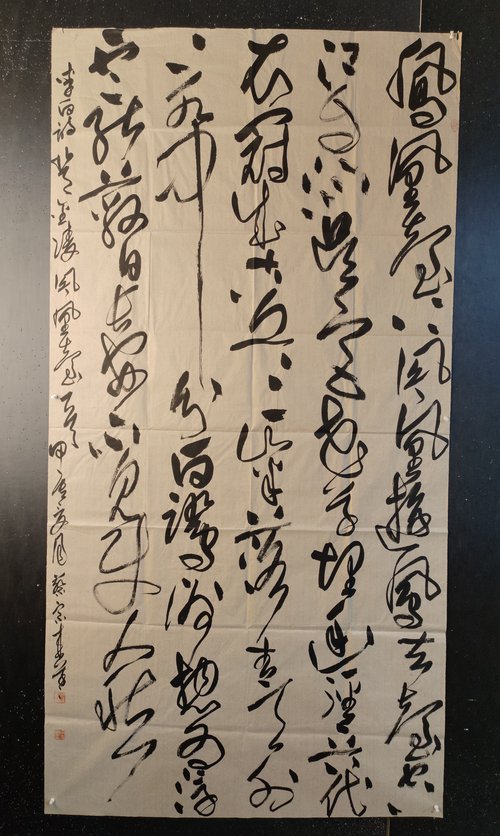 鳳凰臺上鳳凰遊鳳去臺空
江自流吳宮花草埋幽徑晉代
衣冠成古丘三山半落青天外
二水中分白鷺洲總為浮
雲能蔽日長安不見使人愁
李白詩登金陵鳳凰臺一首 甲辰夏月